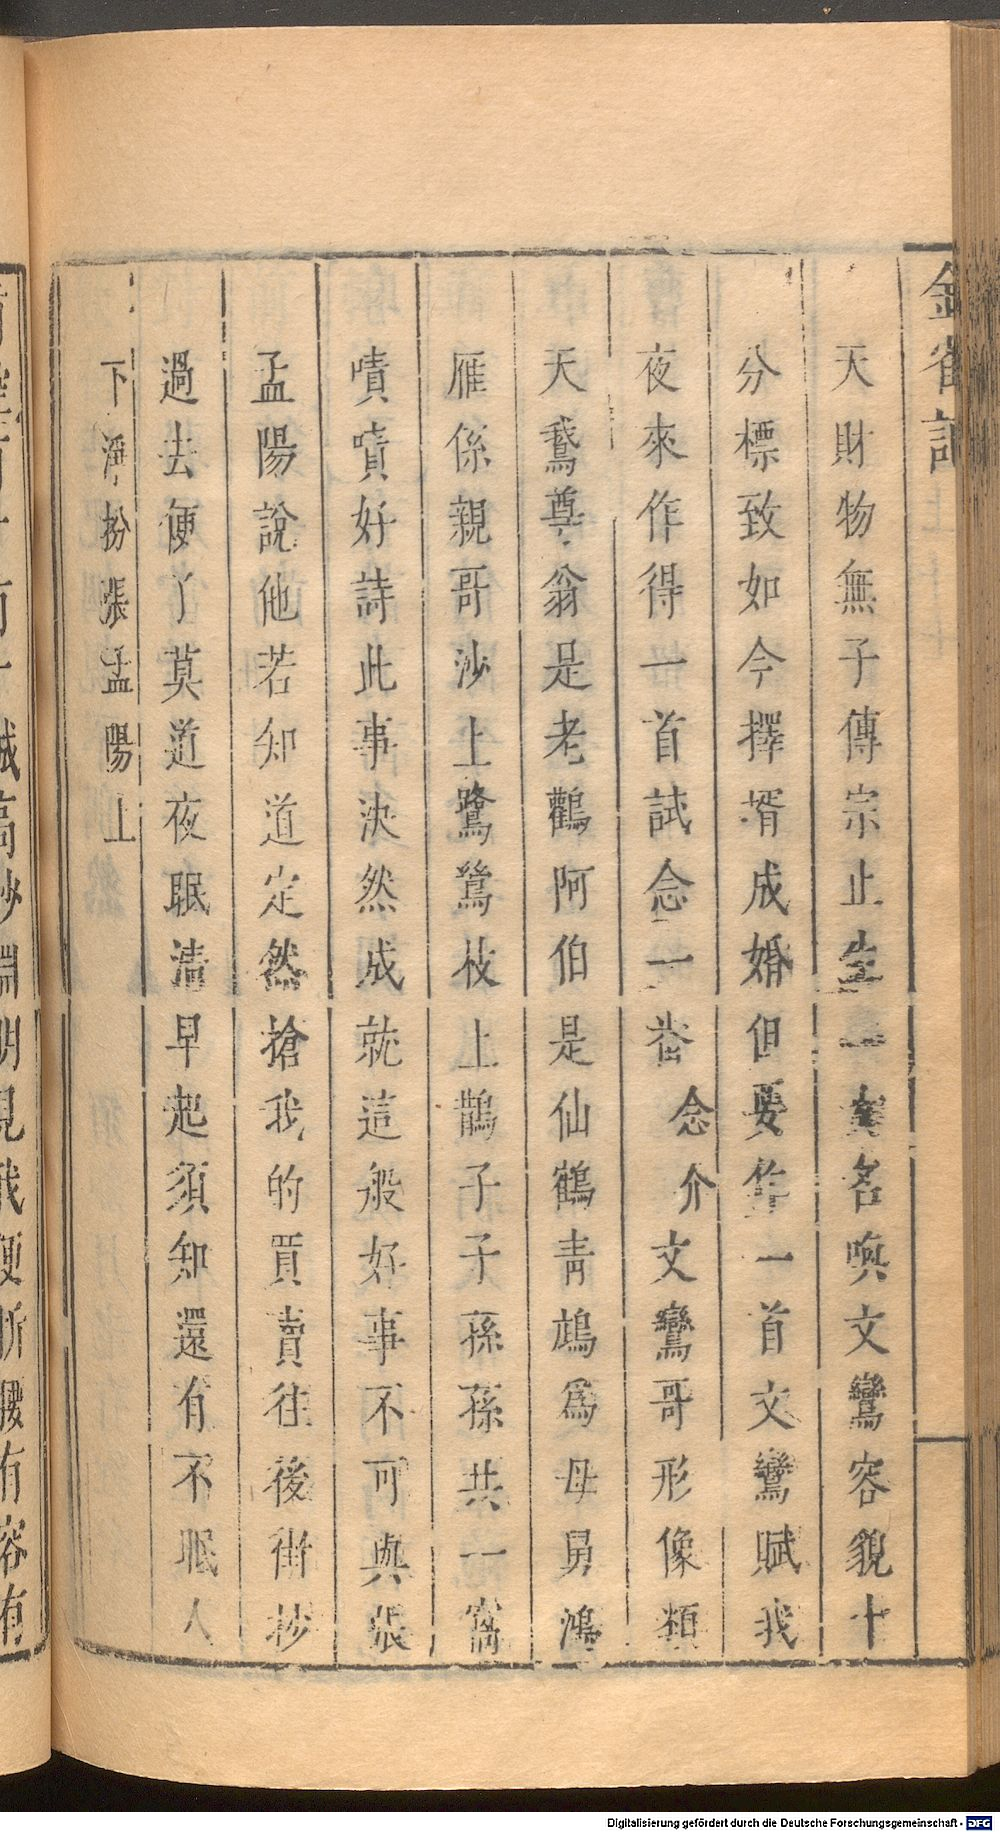 金雀記
天財物無子傳宗止生一女名喚文鸞容貌十
分標致如今擇壻成婚但要作一首文鸞賦我
夜來作得一首試念一番念介文鸞哥形像類
天鵞尊翁是老鸛阿伯是仙鶴青鴆爲母舅鴻
雁係親哥沙上鷺鷥枝上鵲子子孫孫共一窩
嘖嘖好詩此事決然成就這般好事不可與張
孟陽說他若知道定然搶我的買賣往後街抄
過去便了莫道夜眠清早起須知還有不眠人
下 淨扮張孟陽上
Digitalisierung gefördert durch die Deutsche Forschungsgemeinschaft - DFG